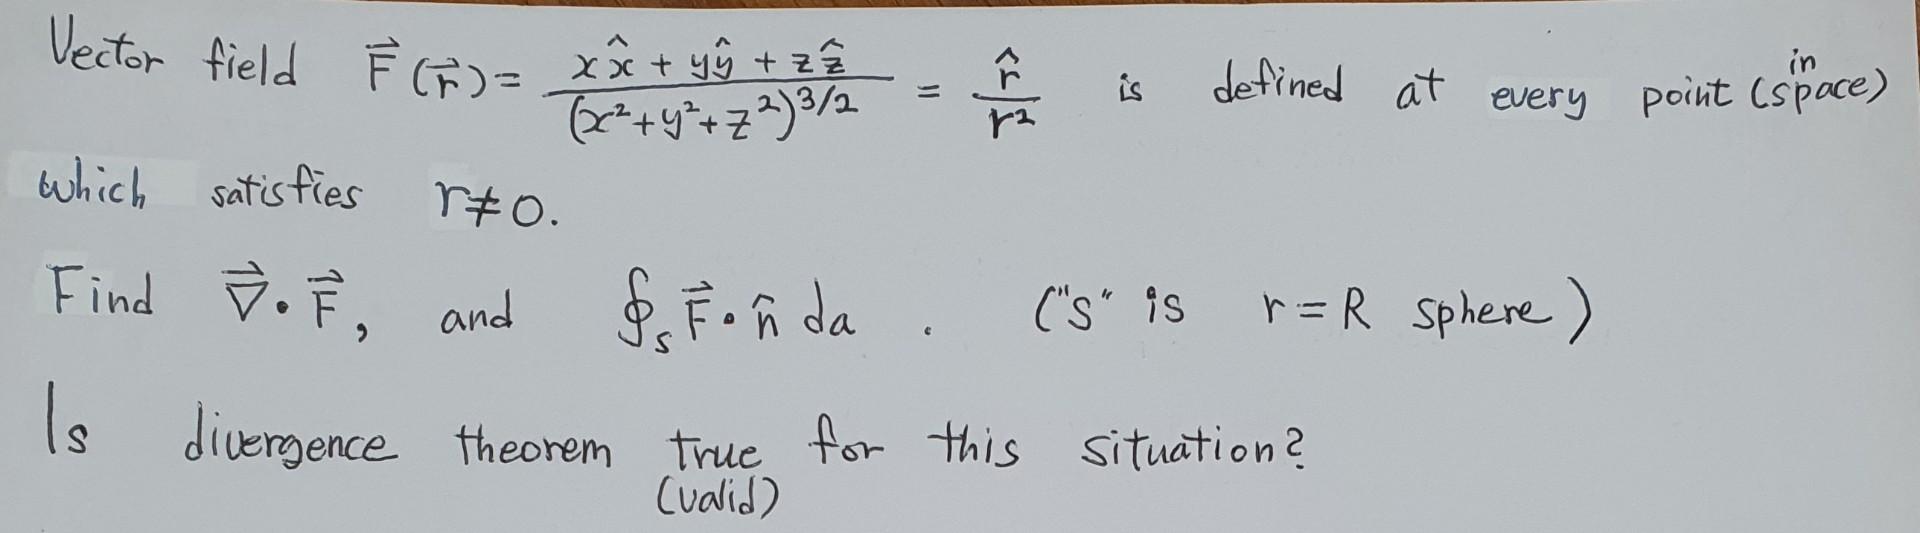 Vector field F⃗(r⃗) = (xx̂ + yŷ + zẑ)/(x²+y²+z²)^{3/2} = r̂/r² is defined at every point (in space)
which satisfies r≠0.
Find ∇⃗·F⃗, and ∮_S F⃗·n̂ da . ("S" is r=R sphere)
Is divergence theorem true (valid) for this situation?